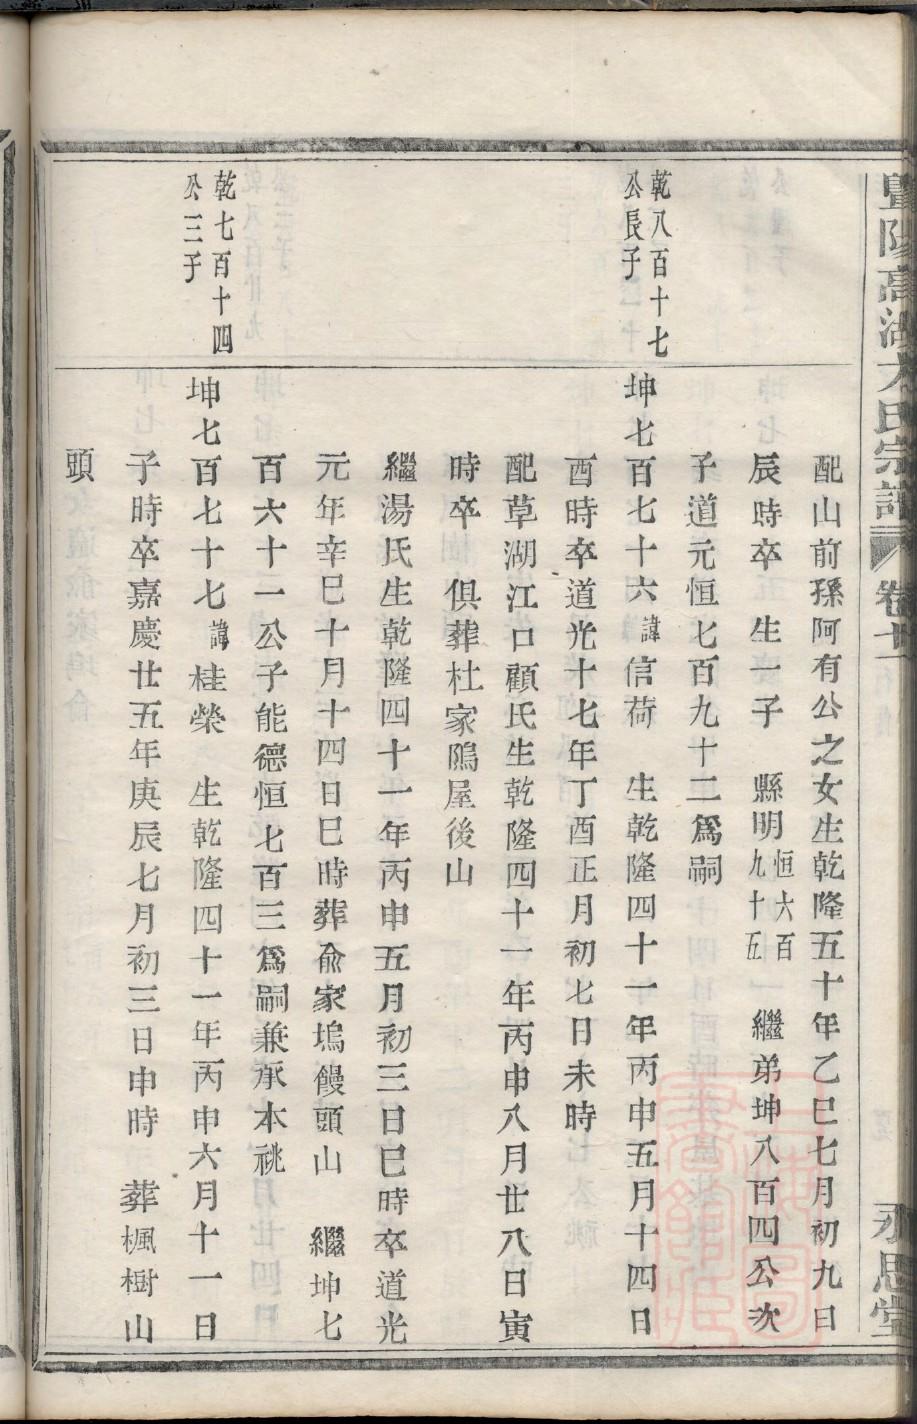 暨陽高湖 氏宗譜 卷十一 永思堂
配山前孫阿有公之女生乾隆五十年乙巳七月初九日
辰時卒 生一子 縣明恒六百九十五 繼弟坤八百四公次
子道元恒七百九十二爲嗣
乾八百十七
公長子
坤七百七十六諱信荷 生乾隆四十一年丙申五月十四日
酉時卒道光十七年丁酉正月初七日未時
配草湖江口顧氏生乾隆四十一年丙申八月廿八日寅
時卒 俱葬杜家隖屋後山
繼湯氏生乾隆四十一年丙申五月初三日巳時卒道光
元年辛巳十月十四日巳時葬兪家塢饅頭山 繼坤七
百六十一公子能德恒七百三爲嗣兼承本祧
乾七百十四
公三子
坤七百七十七諱桂榮 生乾隆四十一年丙申六月十一日
子時卒嘉慶廿五年庚辰七月初三日申時 葬楓樹山
頭